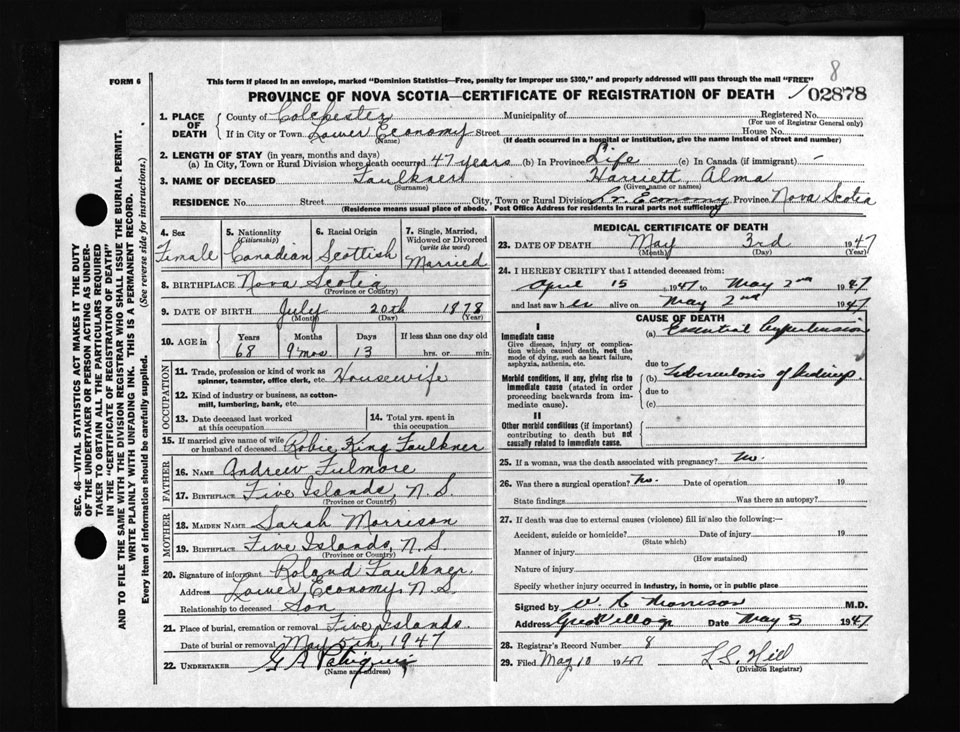 8
FORM 6
This form if placed in an envelope, marked "Dominion Statistics—Free, penalty for improper use $300," and properly addressed will pass through the mail "FREE"
PROVINCE OF NOVA SCOTIA—CERTIFICATE OF REGISTRATION OF DEATH
02878
SEC. 46—VITAL STATISTICS ACT MAKES IT THE DUTY
OF THE UNDERTAKER OR PERSON ACTING AS UNDER-
TAKER TO OBTAIN ALL THE PARTICULARS REQUIRED
IN THE "CERTIFICATE OF REGISTRATION OF DEATH"
AND TO FILE THE SAME WITH THE DIVISION REGISTRAR WHO SHALL ISSUE THE BURIAL PERMIT.
WRITE PLAINLY WITH UNFADING INK. THIS IS A PERMANENT RECORD.
Every item of information should be carefully supplied. (See reverse side for instructions.)
1. PLACE OF DEATH
County of Colchester Municipality of Registered No.
(For use of Registrar General only)
If in City or Town Lower Economy Street House No.
(Name) (If death occurred in a hospital or institution, give the name instead of street and number)
2. LENGTH OF STAY (in years, months and days)
(a) In City, Town or Rural Division where death occurred 47 years (b) In Province Life (c) In Canada (if immigrant) –
3. NAME OF DECEASED Faulkner Harriett Alma
(Surname) (Given name or names)
RESIDENCE No. Street City, Town or Rural Division Lr. Economy Province Nova Scotia
(Residence means usual place of abode. Post Office Address for residents in rural parts not sufficient)
4. Sex
Female
5. Nationality
(Citizenship)
Canadian
6. Racial Origin
Scottish
7. Single, Married, Widowed or Divorced
(write the word)
Married
8. BIRTHPLACE Nova Scotia
(Province or Country)
9. DATE OF BIRTH July 20th 1878
(Month) (Day) (Year)
10. AGE in Years Months Days If less than one day old
68 9 mos 13 hrs. or min.
OCCUPATION
11. Trade, profession or kind of work as
spinner, teamster, office clerk, etc. Housewife
12. Kind of industry or business, as cotton-
mill, lumbering, bank, etc.
13. Date deceased last worked
at this occupation
14. Total yrs. spent in
this occupation
15. If married give name of wife
or husband of deceased Robie King Faulkner
FATHER
16. NAME Andrew Fulmore
17. BIRTHPLACE Five Islands, N.S.
(Province or Country)
MOTHER
18. MAIDEN NAME Sarah Morrison
19. BIRTHPLACE Five Islands, N.S.
(Province or Country)
20. Signature of informant Roland Faulkner
Address Lower Economy, N.S.
Relationship to deceased Son
21. Place of burial, cremation or removal Five Islands.
Date of burial or removal May 5th, 1947
22. UNDERTAKER G A
(Name and address)
MEDICAL CERTIFICATE OF DEATH
23. DATE OF DEATH May 3rd 1947
(Month) (Day) (Year)
24. I HEREBY CERTIFY that I attended deceased from:
April 15, 1947 to May 2nd 1947
and last saw her alive on May 2nd 1947
CAUSE OF DEATH
I
Immediate cause
Give disease, injury or compli-
cation which caused death, not the
mode of dying, such as heart failure,
asphyxia, asthenia, etc.
(a) Essential hypertension
due to
Morbid conditions, if any, giving rise to
immediate cause (stated in order
proceeding backwards from im-
mediate cause).
(b) Tuberculosis of kidneys.
due to
(c)
II
Other morbid conditions (if important)
contributing to death but not
causally related to immediate cause.
25. If a woman, was the death associated with pregnancy? no.
26. Was there a surgical operation? no. Date of operation 19
State findings Was there an autopsy?
27. If death was due to external causes (violence) fill in also the following:—
Accident, suicide or homicide? Date of injury 19
(State which)
Manner of injury
(How sustained)
Nature of injury
Specify whether injury occurred in industry, in home, or in public place
Signed by Morrison M.D.
Address Great Village Date May 5 1947
28. Registrar's Record Number 8
29. Filed May 10 1947 L S. Hill
(Division Registrar)